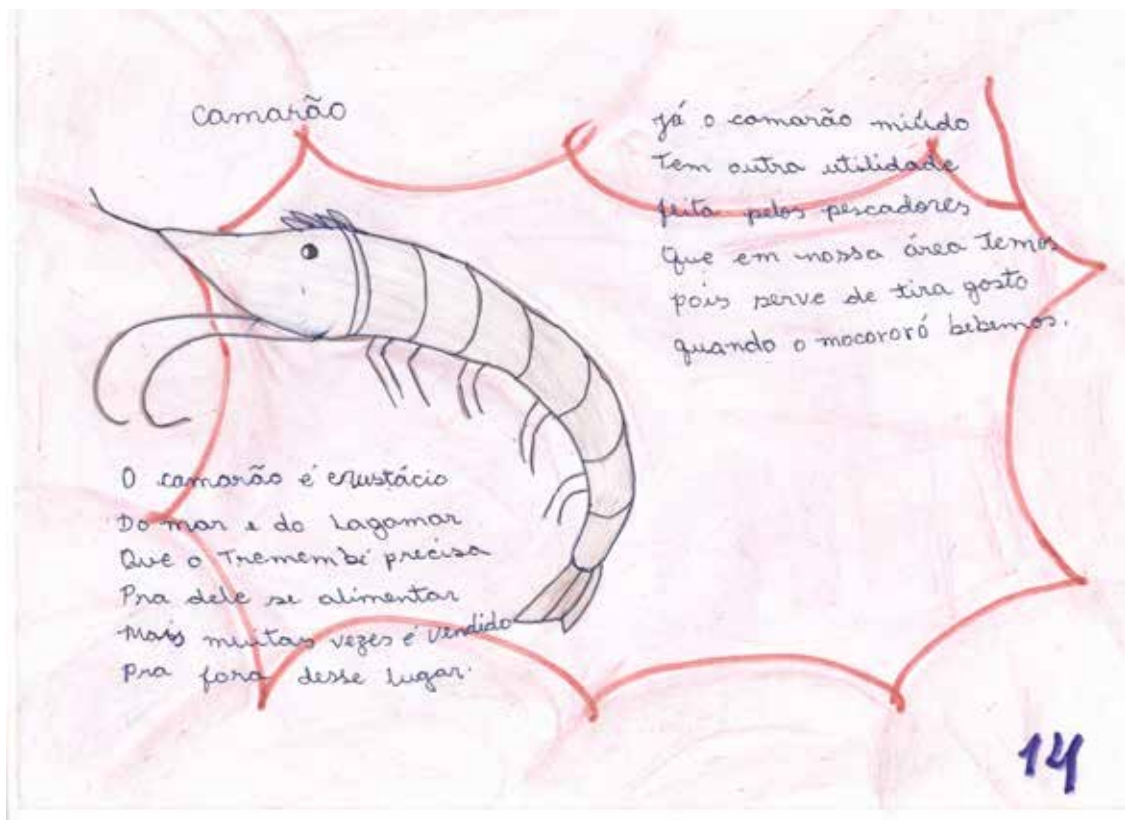 Camarão
O camarão é crustácio
Do mar e do Lagamar
Que o Tremembé precisa
Pra dele se alimentar
Mais muitas vezes é vendido
Pra fora desse lugar.
Já o camarão miúdo
Tem outra utilidade
feita pelos pescadores
Que em nossa área Temos
pois serve de tira gosto
quando o mocororó bebemos.
14